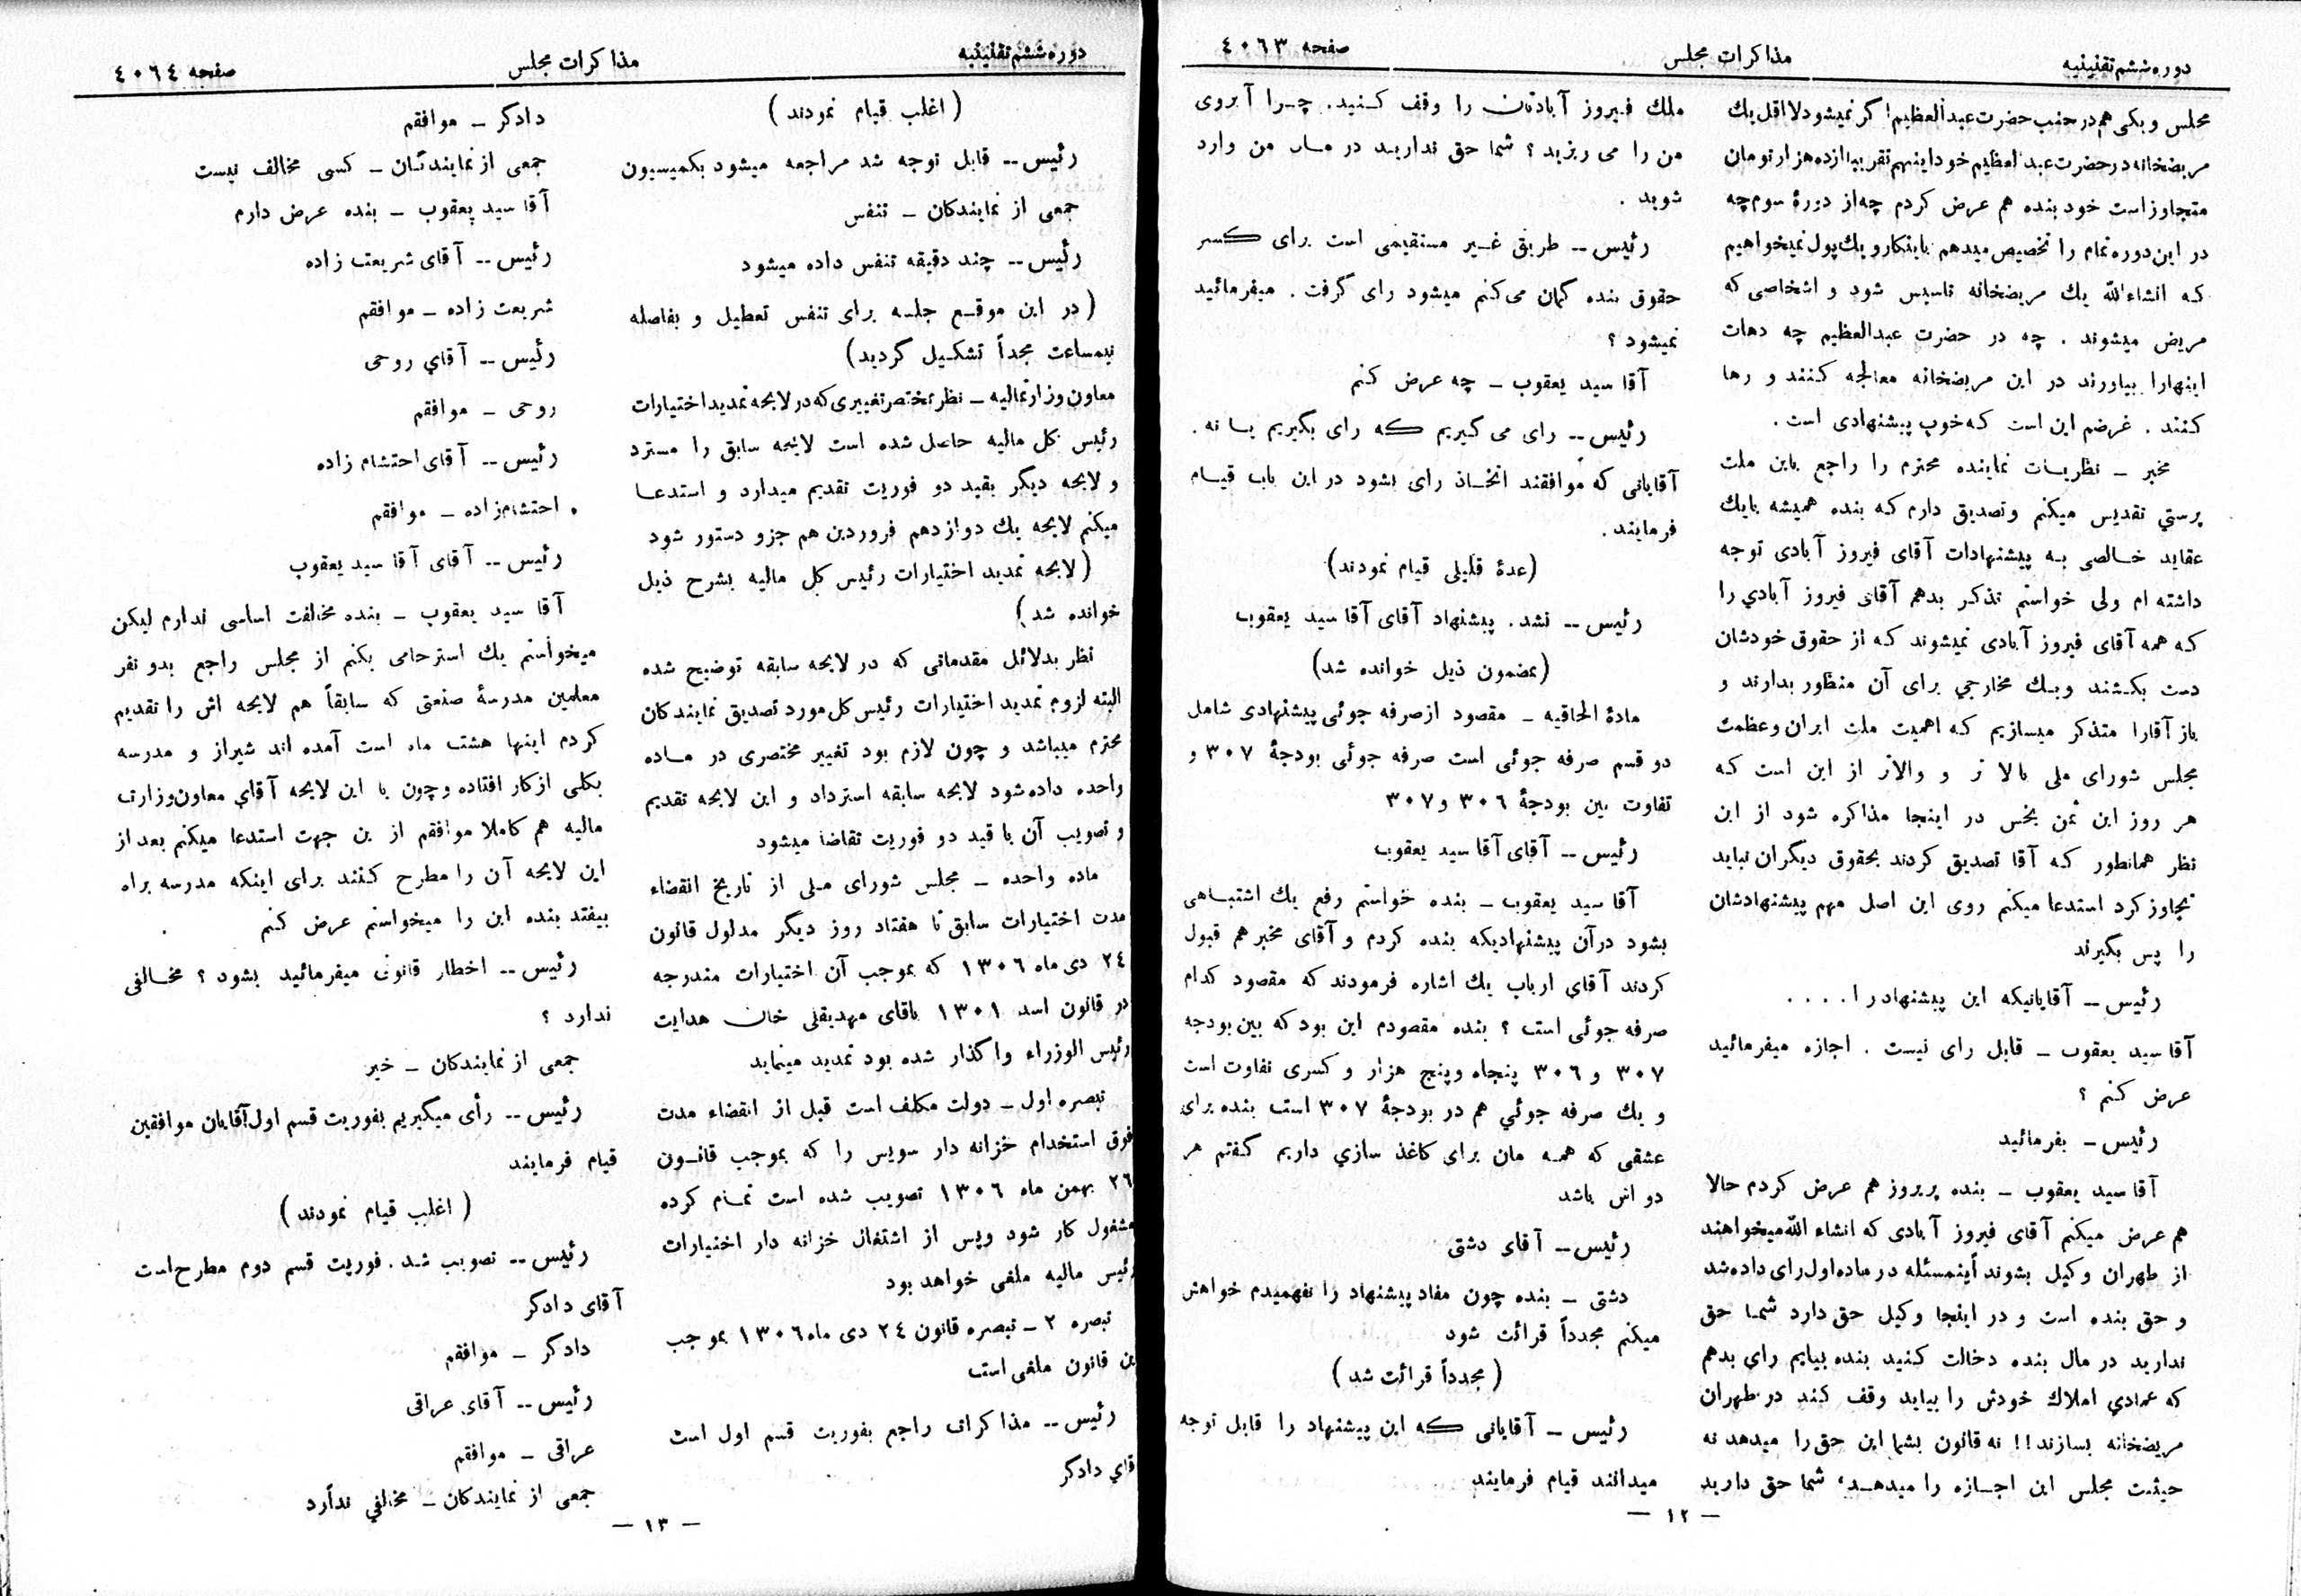 دوره ششم تقنینیه
مذاکرات مجلس
صفحه ٤٠٦٣
مجلس و یکی هم در جنب حضرت عبدالعظیم اگر نمیشود لااقل یك
مریضخانه در حضرت عبدالعظیم خود اینهم تقریباً یازده هزار تومان
متجاوز است خود بنده هم عرض کردم چه از دورهٔ سوم چه
در این دوره تمام را تخصیص میدهم باینکار و یك پول نمیخواهیم
که انشاءالله یك مریضخانه تاسیس شود و اشخاصی که
مریض میشوند . چه در حضرت عبدالعظیم چه دهات
اینهارا بیاورند در این مریضخانه معالجه کنند و رها
کنند . غرضم این است که خوب پیشنهادی است .
مخبر ـ نظریات نماینده محترم را راجع باین ملت
پرستي تقدیس میکنم و تصدیق دارم که بنده همیشه بایك
عقاید خالصی به پیشنهادات آقای فیروز آبادی توجه
داشته ام ولی خواستم تذکر بدهم آقای فیروز آبادي را
که همه آقای فیروز آبادی نمیشوند که از حقوق خودشان
دست بکشند و یك مخارجي برای آن منظور بدارند و
باز آقارا متذکر میسازیم که اهمیت ملت ایران و عظمت
مجلس شورای ملی بالا تر و والاتر از این است که
هر روز این ثمن بخس در اینجا مذاکره شود از این
نظر همانطور که آقا تصدیق کردند بحقوق دیگران نباید
تجاوز کرد استدعا میکنم روی این اصل مهم پیشنهادشان
را پس بگیرند
رئیس ـ آقایانیکه این پیشنهاد را . . . .
آقا سید یعقوب ـ قابل رای نیست . اجازه میفرمائید
عرض کنم ؟
رئیس ـ بفرمائید
آقا سید یعقوب ـ بنده پریروز هم عرض کردم حالا
هم عرض میکنم آقای فیروز آبادی که انشاء الله میخواهند
از طهران وکیل بشوند اینمسئله در ماده اول رای داده شد
و حق بنده است و در اینجا وکیل حق دارد شما حق
ندارید در مال بنده دخالت کنید بنده بیایم رای بدهم
که عمادي املاك خودش را بیاید وقف کند در طهران
مریضخانه بسازند!! نه قانون بشما این حق را میدهد نه
حیثیت مجلس این اجازه را میدهد، شما حق دارید
ملك فیروز آبادتان را وقف کنید. چرا آبروی
من را می ریزید ؟ شما حق ندارید در مال من وارد
شوید .
رئیس ـ طریق غیر مستقیمی است برای کسر
حقوق بنده گمان می‌کنم میشود رای گرفت . میفرمائید
نمیشود ؟
آقا سید یعقوب ـ چه عرض کنم
رئیس ـ رای می گیریم که رای بگیریم یا نه .
آقایانی که موافقند اتخاذ رای بشود در این باب قیام
فرمایند .
(عدهٔ قلیلی قیام نمودند)
رئیس ـ نشد . پیشنهاد آقای آقا سید یعقوب
(بمضمون ذیل خوانده شد)
مادهٔ الحاقیه ـ مقصود از صرفه جوئی پیشنهادی شامل
دو قسم صرفه جوئی است صرفه جوئی بودجهٔ ٣٠٧ و
تفاوت بین بودجهٔ ٣٠٦ و ٣٠٧
رئیس ـ آقای آقا سید یعقوب
آقا سید یعقوب ـ بنده خواستم رفع یك اشتباهی
بشود در آن پیشنهادیکه بنده کردم و آقای مخبر هم قبول
کردند آقای ارباب یك اشاره فرمودند که مقصود کدام
صرفه جوئی است ؟ بنده مقصودم این بود که بین بودجه
٣٠٧ و ٣٠٦ پنجاه و پنج هزار و کسری تفاوت است
و یك صرفه جوئي هم در بودجهٔ ٣٠٧ است بنده برای
عشقی که همه مان برای کاغذ سازي داریم گفتم هر
دو اش باشد
رئیس ـ آقای دشتی
دشتی ـ بنده چون مفاد پیشنهاد را نفهمیدم خواهش
میکنم مجدداً قرائت شود
(مجدداً قرائت شد)
رئیس ـ آقایانی که این پیشنهاد را قابل توجه
میدانند قیام فرمایند
ـ ١٢ ـ
دوره ششم تقنینیه
مذاکرات مجلس
صفحه ٤٠٦٤
(اغلب قیام نمودند)
رئیس ـ قابل توجه شد مراجعه میشود بکمیسیون
جمعی از نمایندگان ـ تنفس
رئیس ـ چند دقیقه تنفس داده میشود
(در این موقع جلسه برای تنفس تعطیل و بفاصله
نیمساعت مجدداً تشکیل گردید)
معاون وزارتمالیه ـ نظر بمختصر تغییری که در لایحه تمدید اختیارات
رئیس کل مالیه حاصل شده است لایحه سابق را مسترد
و لایحه دیگر بقید دو فوریت تقدیم میدارد و استدعا
میکنم لایحه یك دوازدهم فروردین هم جزو دستور شود
(لایحه تمدید اختیارات رئیس کل مالیه بشرح ذیل
خوانده شد)
نظر بدلائل مقدماتی که در لایحه سابقه توضیح شده
البته لزوم تمدید اختیارات رئیس کل مورد تصدیق نمایندکان
محترم میباشد و چون لازم بود تغییر مختصری در ماده
واحده داده شود لایحه سابقه استرداد و این لایحه تقدیم
و تصویب آن با قید دو فوریت تقاضا میشود
ماده واحده ـ مجلس شورای ملی از تاریخ انقضاء
مدت اختیارات سابق تا هفتاد روز دیگر مدلول قانون
٢٤ دی ماه ١٣٠٦ که بموجب آن اختیارات مندرجه
در قانون اسد ١٣٠١ باقای مهدیقلی خان هدایت
رئیس الوزراء واگذار شده بود تمدید مینماید
تبصره اول ـ دولت مکلف است قبل از انقضاء مدت
فوق استخدام خزانه دار سویس را که بموجب قانون
٢٦ بهمن ماه ١٣٠٦ تصویب شده است تمام کرده
مشغول کار شود و پس از اشتغال خزانه دار اختیارات
رئیس مالیه ملغی خواهد بود
تبصره ٢ ـ تبصره قانون ٢٤ دی ماه ١٣٠٦ بموجب
این قانون ملغی است
رئیس ـ مذاکرات راجع بفوریت قسم اول است
قاي دادگر
دادگر ـ موافقم
جمعی از نمایندگان ـ کسی مخالف نیست
آقا سید یعقوب ـ بنده عرض دارم
رئیس ـ آقای شریعت زاده
شریعت زاده ـ موافقم
رئیس ـ آقاي روحی
روحی ـ موافقم
رئیس ـ آقای احتشام زاده
احتشام‌زاده ـ موافقم
رئیس ـ آقای آقا سید یعقوب
آقا سید یعقوب ـ بنده مخالفت اساسی ندارم لیکن
میخواستم یك استرحامی بکنم از مجلس راجع بدو نفر
معلمین مدرسهٔ صنعتی که سابقاً هم لایحه اش را تقدیم
کردم اینها هشت ماه است آمده اند شیراز و مدرسه
بکلی از کار افتاده و چون با این لایحه آقاي معاون وزارت
مالیه هم کاملا موافقم از ین جهت استدعا میکنم بعد از
این لایحه آن را مطرح کنند برای اینکه مدرسه براه
بیفتد بنده این را میخواستم عرض کنم
رئیس ـ اخطار قانونی میفرمائید بشود ؟ مخالفی
ندارد ؟
جمعی از نمایندکان ـ خیر
رئیس ـ رأی میگیریم بفوریت قسم اول آقایان موافقین
قیام فرمایند
(اغلب قیام نمودند)
رئیس ـ تصویب شد . فوریت قسم دوم مطرح است
آقای دادگر
دادگر ـ موافقم
رئیس ـ آقای عراقی
عراقی ـ موافقم
جمعی از نمایندکان ـ مخالفي ندارد
ـ ١٣ ـ